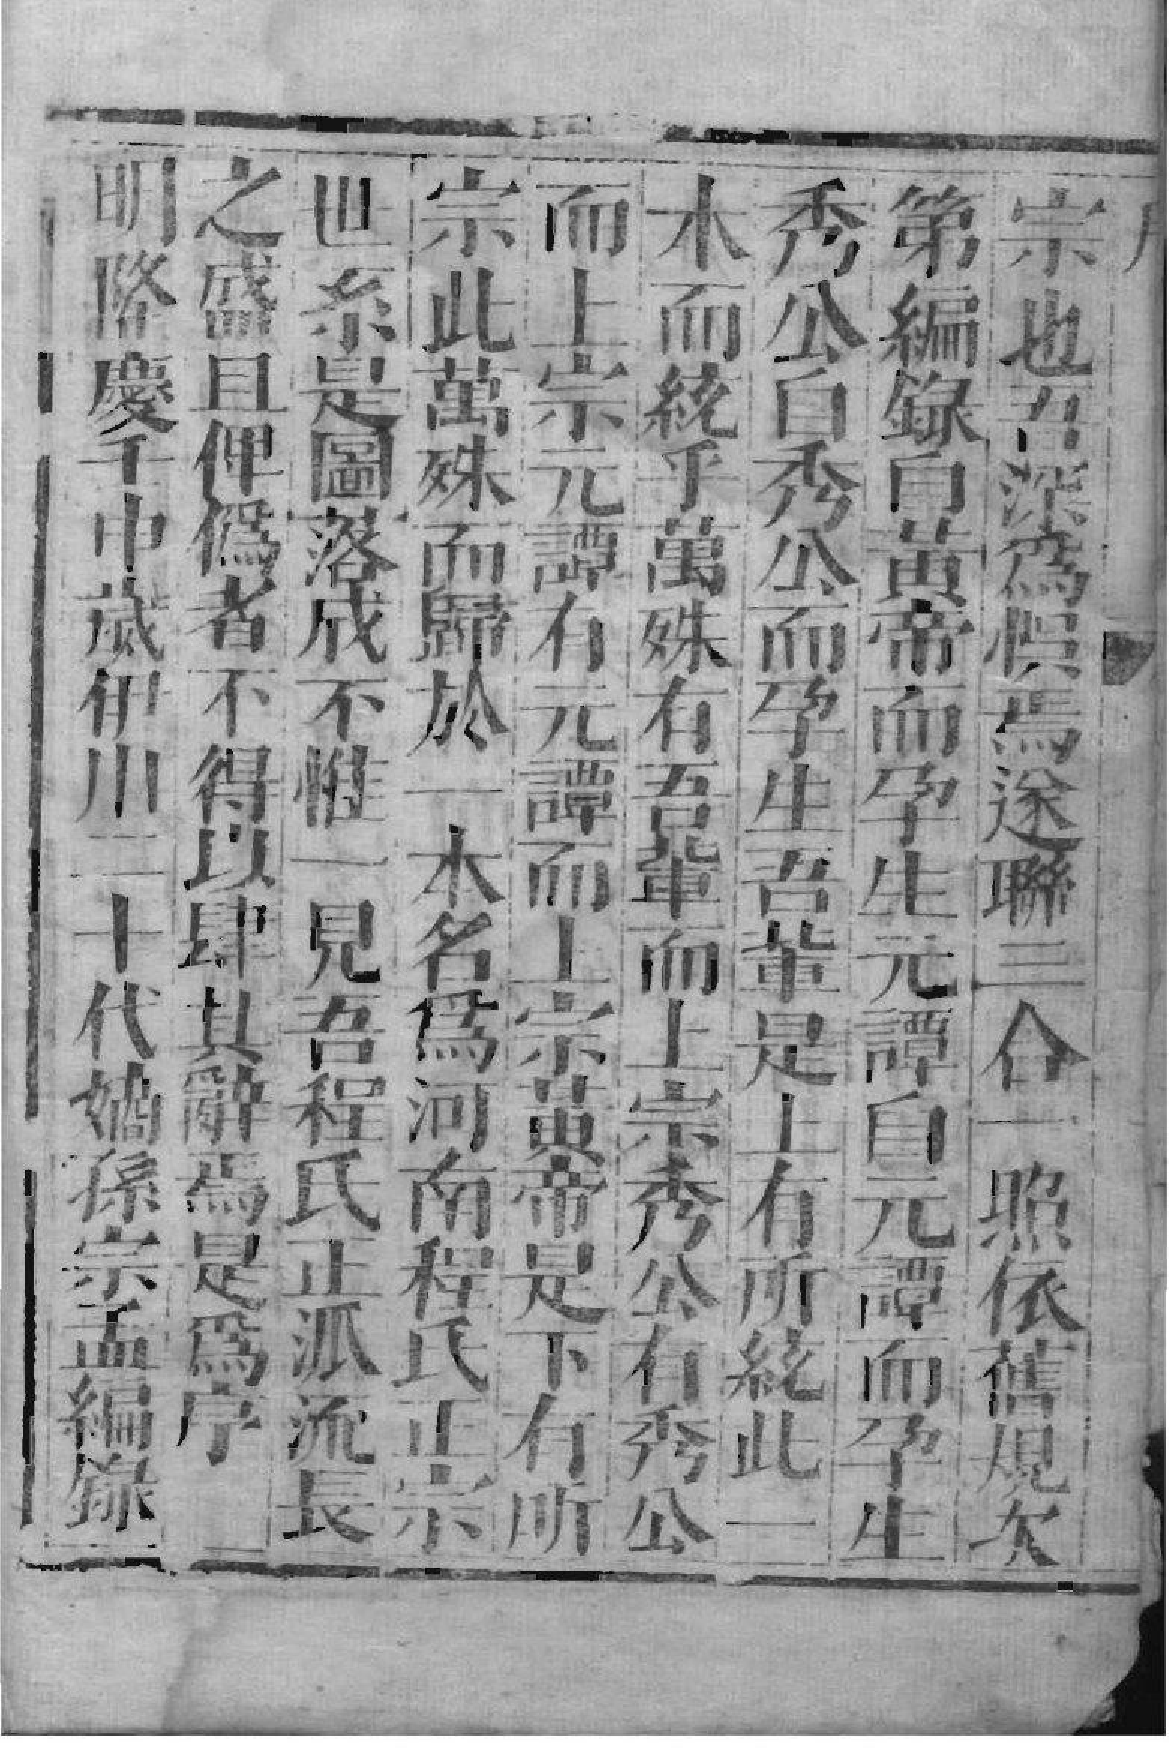 宗也吾深爲懼焉遂聯三合一照依舊規次
第編錄自黃帝而孕生元譚自元譚而孕生
秀公自秀公而孕生吾輩是上有所統此一
本而統乎萬殊有吾輩而上宗秀公有秀公
而上宗元譚有元譚而上宗黃帝是下有所
宗此萬殊而歸於一本名爲河南程氏正宗
世系是圖落成不惟一見吾程氏正派流長
之盛且俾僞者不得以肆其辭焉是爲序
明隆慶壬申歲伊川二十代嫡孫宗孟編錄